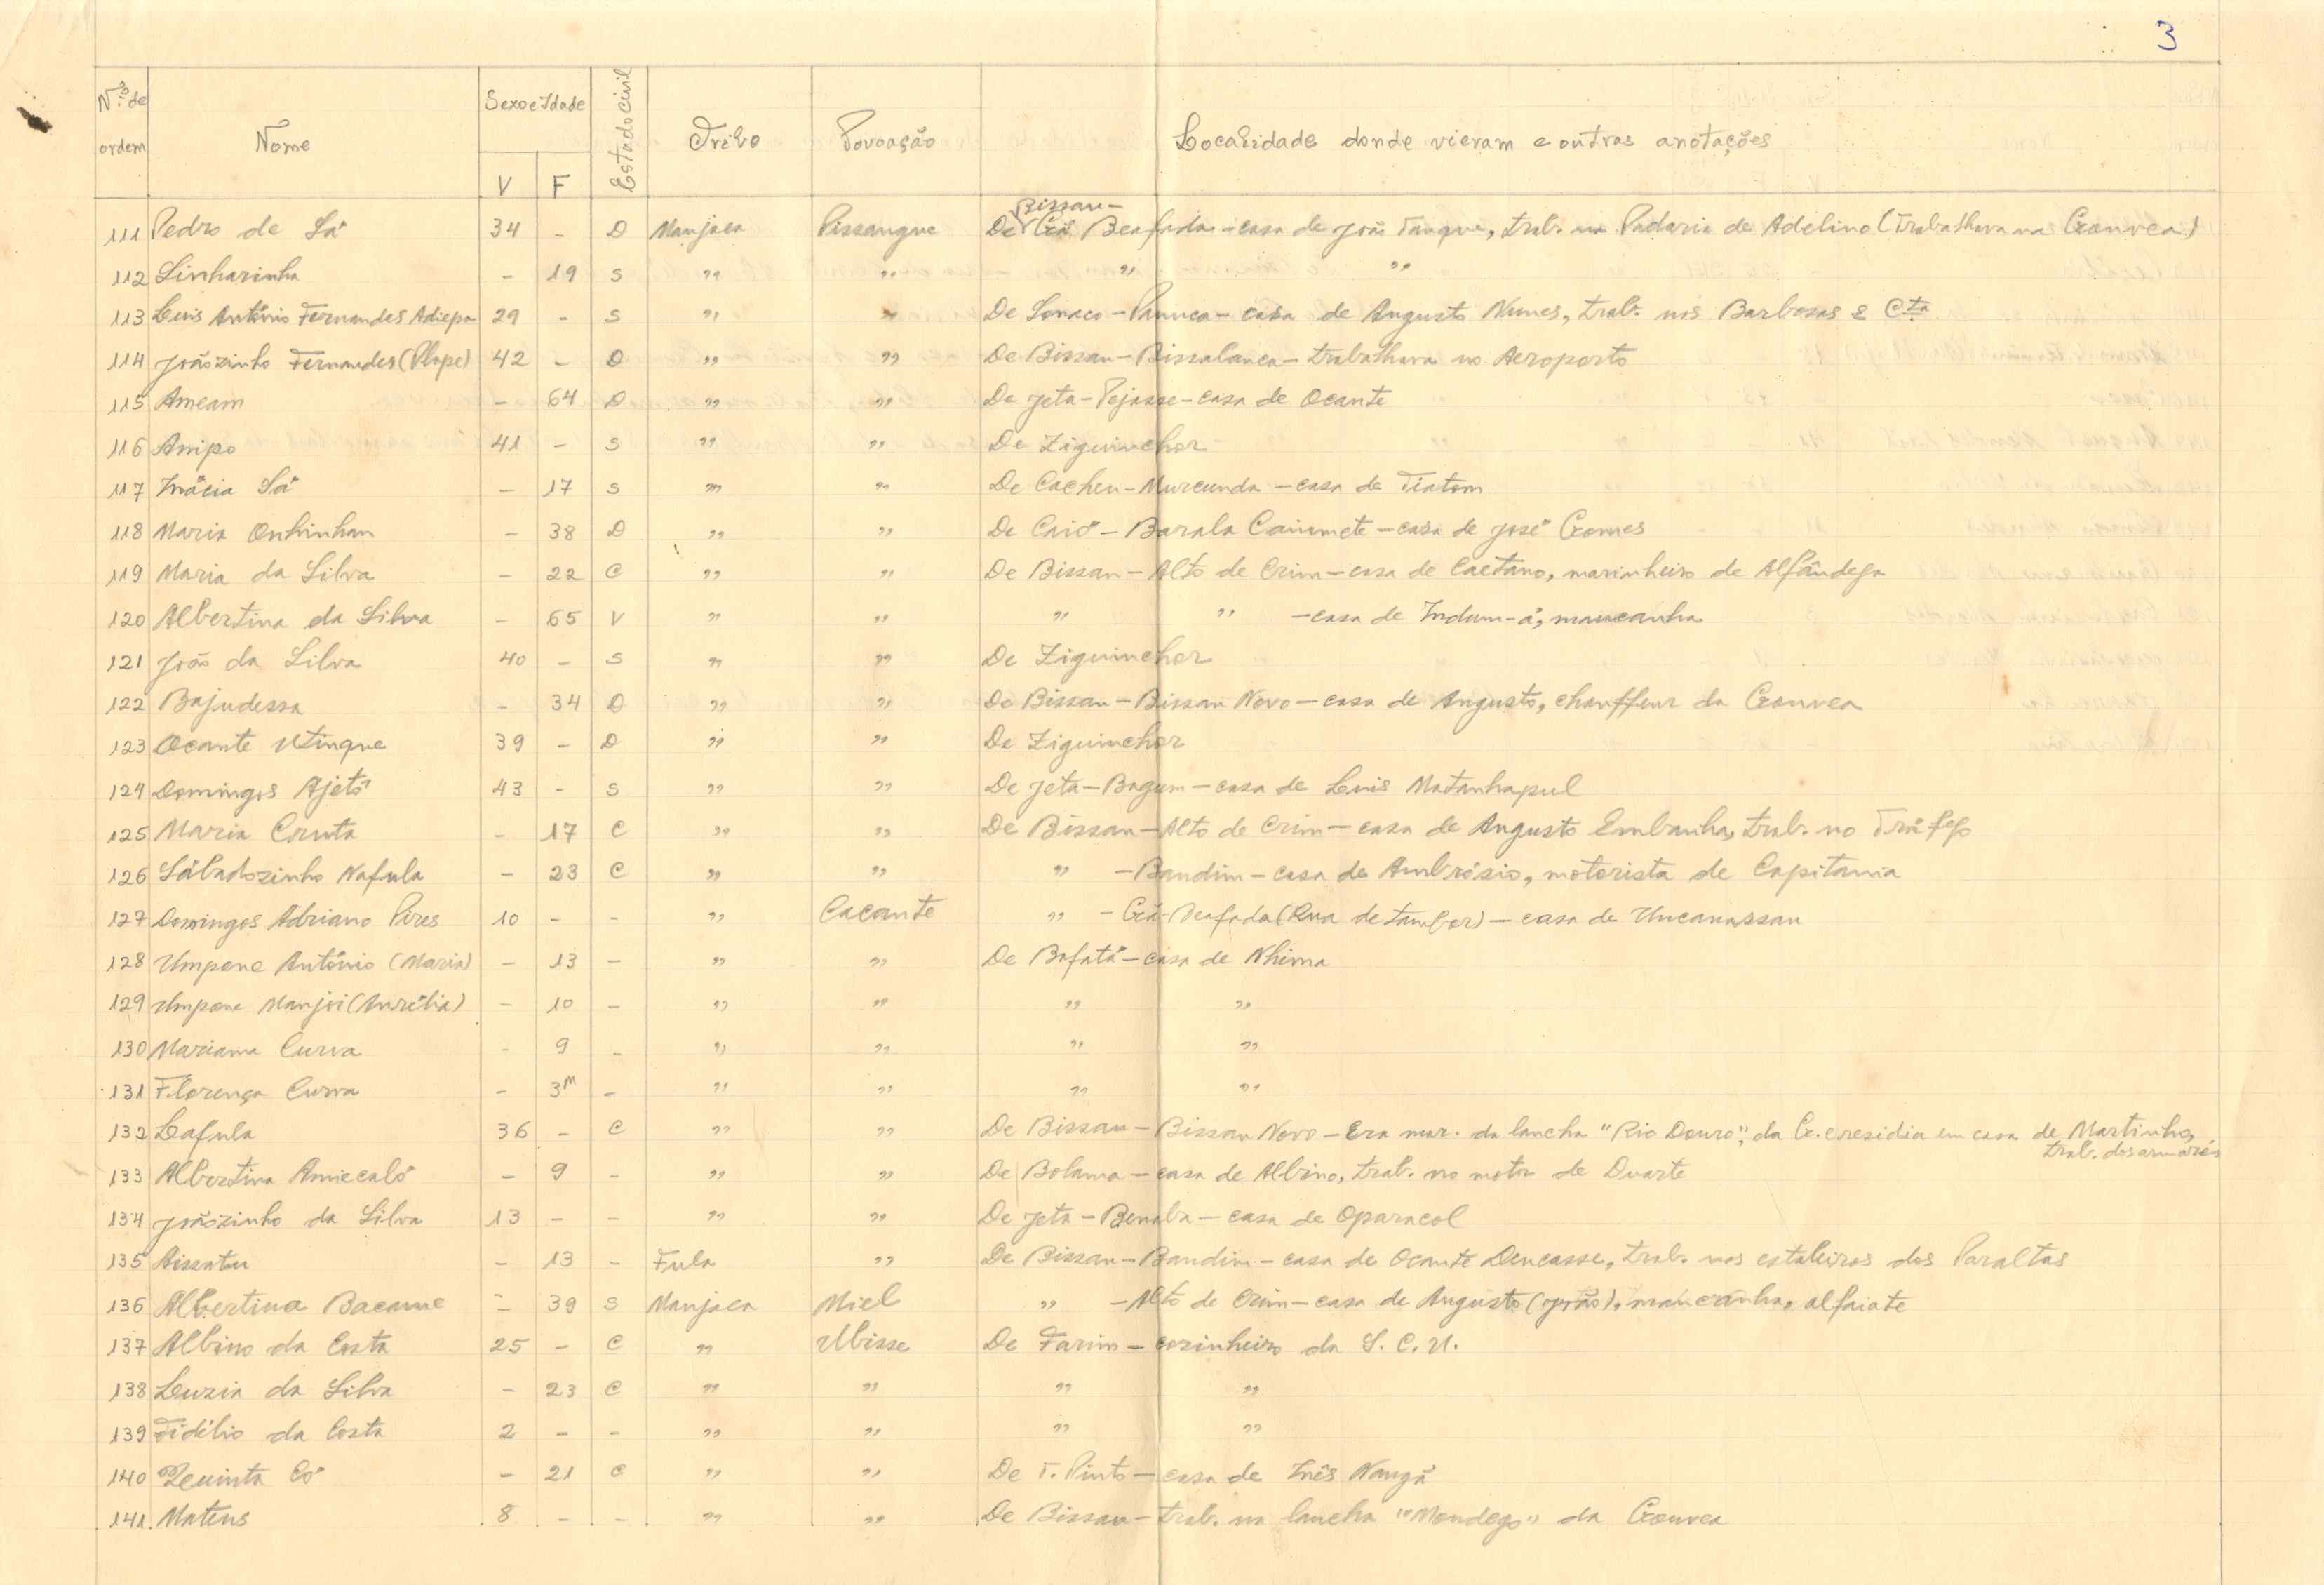 3
Nº de ordem | Nome | Sexo e Idade V F | Estado civil | Tribo | Povoação | Localidade donde vieram e outras anotações
111 Pedro de Sá 34 - D Manjaca Pissangue De Bissau - Gã Beafada - casa de João Tanque, trab. na Padaria de Adelino (Trabalhava na Gouvea)
112 Linharinha - 19 S " " " "
113 Luis António Fernandes Adiepa 29 - S " " De Sonaco - Panuca - casa de Augusto Nunes, trab. nos Barbosas & Cta
114 Joãozinho Fernandes (Plope) 42 - D " " De Bissau - Bissalanca - trabalhava no Aeroporto
115 Ameam - 64 D " " De Jeta - Pejasse - casa de Ocante
116 Anipo 41 - S " " De Ziguinchor
117 Inácia Sá - 17 S " " De Cacheu - Murcunda - casa de Tiatom
118 Maria Onhinhan - 38 D " " De Caió - Barala Caiomete - casa de José Gomes
119 Maria da Silva - 22 C " " De Bissau - Alto de Crim - casa de Caetano, marinheiro de Alfândega
120 Albertina da Silva - 65 V " " " " - casa de Indum-á, mancanha
121 João da Silva 40 - S " " De Ziguinchor
122 Bajudessa - 34 D " " De Bissau - Bissau Novo - casa de Augusto, chauffeur da Gouvea
123 Ocante Utinque 39 - D " " De Ziguinchor
124 Domingos Ajetó 43 - S " " De Jeta - Bagum - casa de Luis Matanhapul
125 Maria Cruta - 17 C " " De Bissau - Alto de Crim - casa de Augusto Embanha, trab. no Tráfego
126 Sábadozinho Nafula - 23 C " " " - Bandim - casa de Ambrósio, motorista de Capitania
127 Domingos Adriano Pires 10 - - " Cacante " - Gã-Beafada (Rua de tambor) - casa de Uncanassau
128 Umpane António (Maria) - 13 - " " De Bafatá - casa de Nhima
129 Umpane Manjoi (Aurélia) - 10 - " " " "
130 Mariama Curva - 9 - " " " "
131 Florença Curva - 3M - " " " "
132 Lafula 36 - C " " De Bissau - Bissau Novo - Era mar. da lancha "Rio Douro", da G. e residia em casa de Martinho, trab. dos armazéns
133 Albertina Amiecaló - 9 - " " De Bolama - casa de Albino, trab. no motor de Duarte
134 Joãozinho da Silva 13 - - " " De Jeta - Benaba - casa de Oparacol
135 Aissatu - 13 - Fula " De Bissau - Bandim - casa de Ocante Dencasse, trab. nos estaleiros dos Paraltas
136 Albertina Bacame - 39 S Manjaca Miel " - Alto de Crim - casa de Augusto (João), mancanha, alfaiate
137 Albino da Costa 25 - C " Ubisse De Farim - cozinheiro da S. C. U.
138 Luzia da Silva - 23 C " " " "
139 Fidélio da Costa 2 - - " " " "
140 Quinta Có - 21 C " " De T. Pinto - casa de Inês Nangã
141 Mateus 8 - - " " De Bissau - trab. na lancha "Mondego" da Gouvea